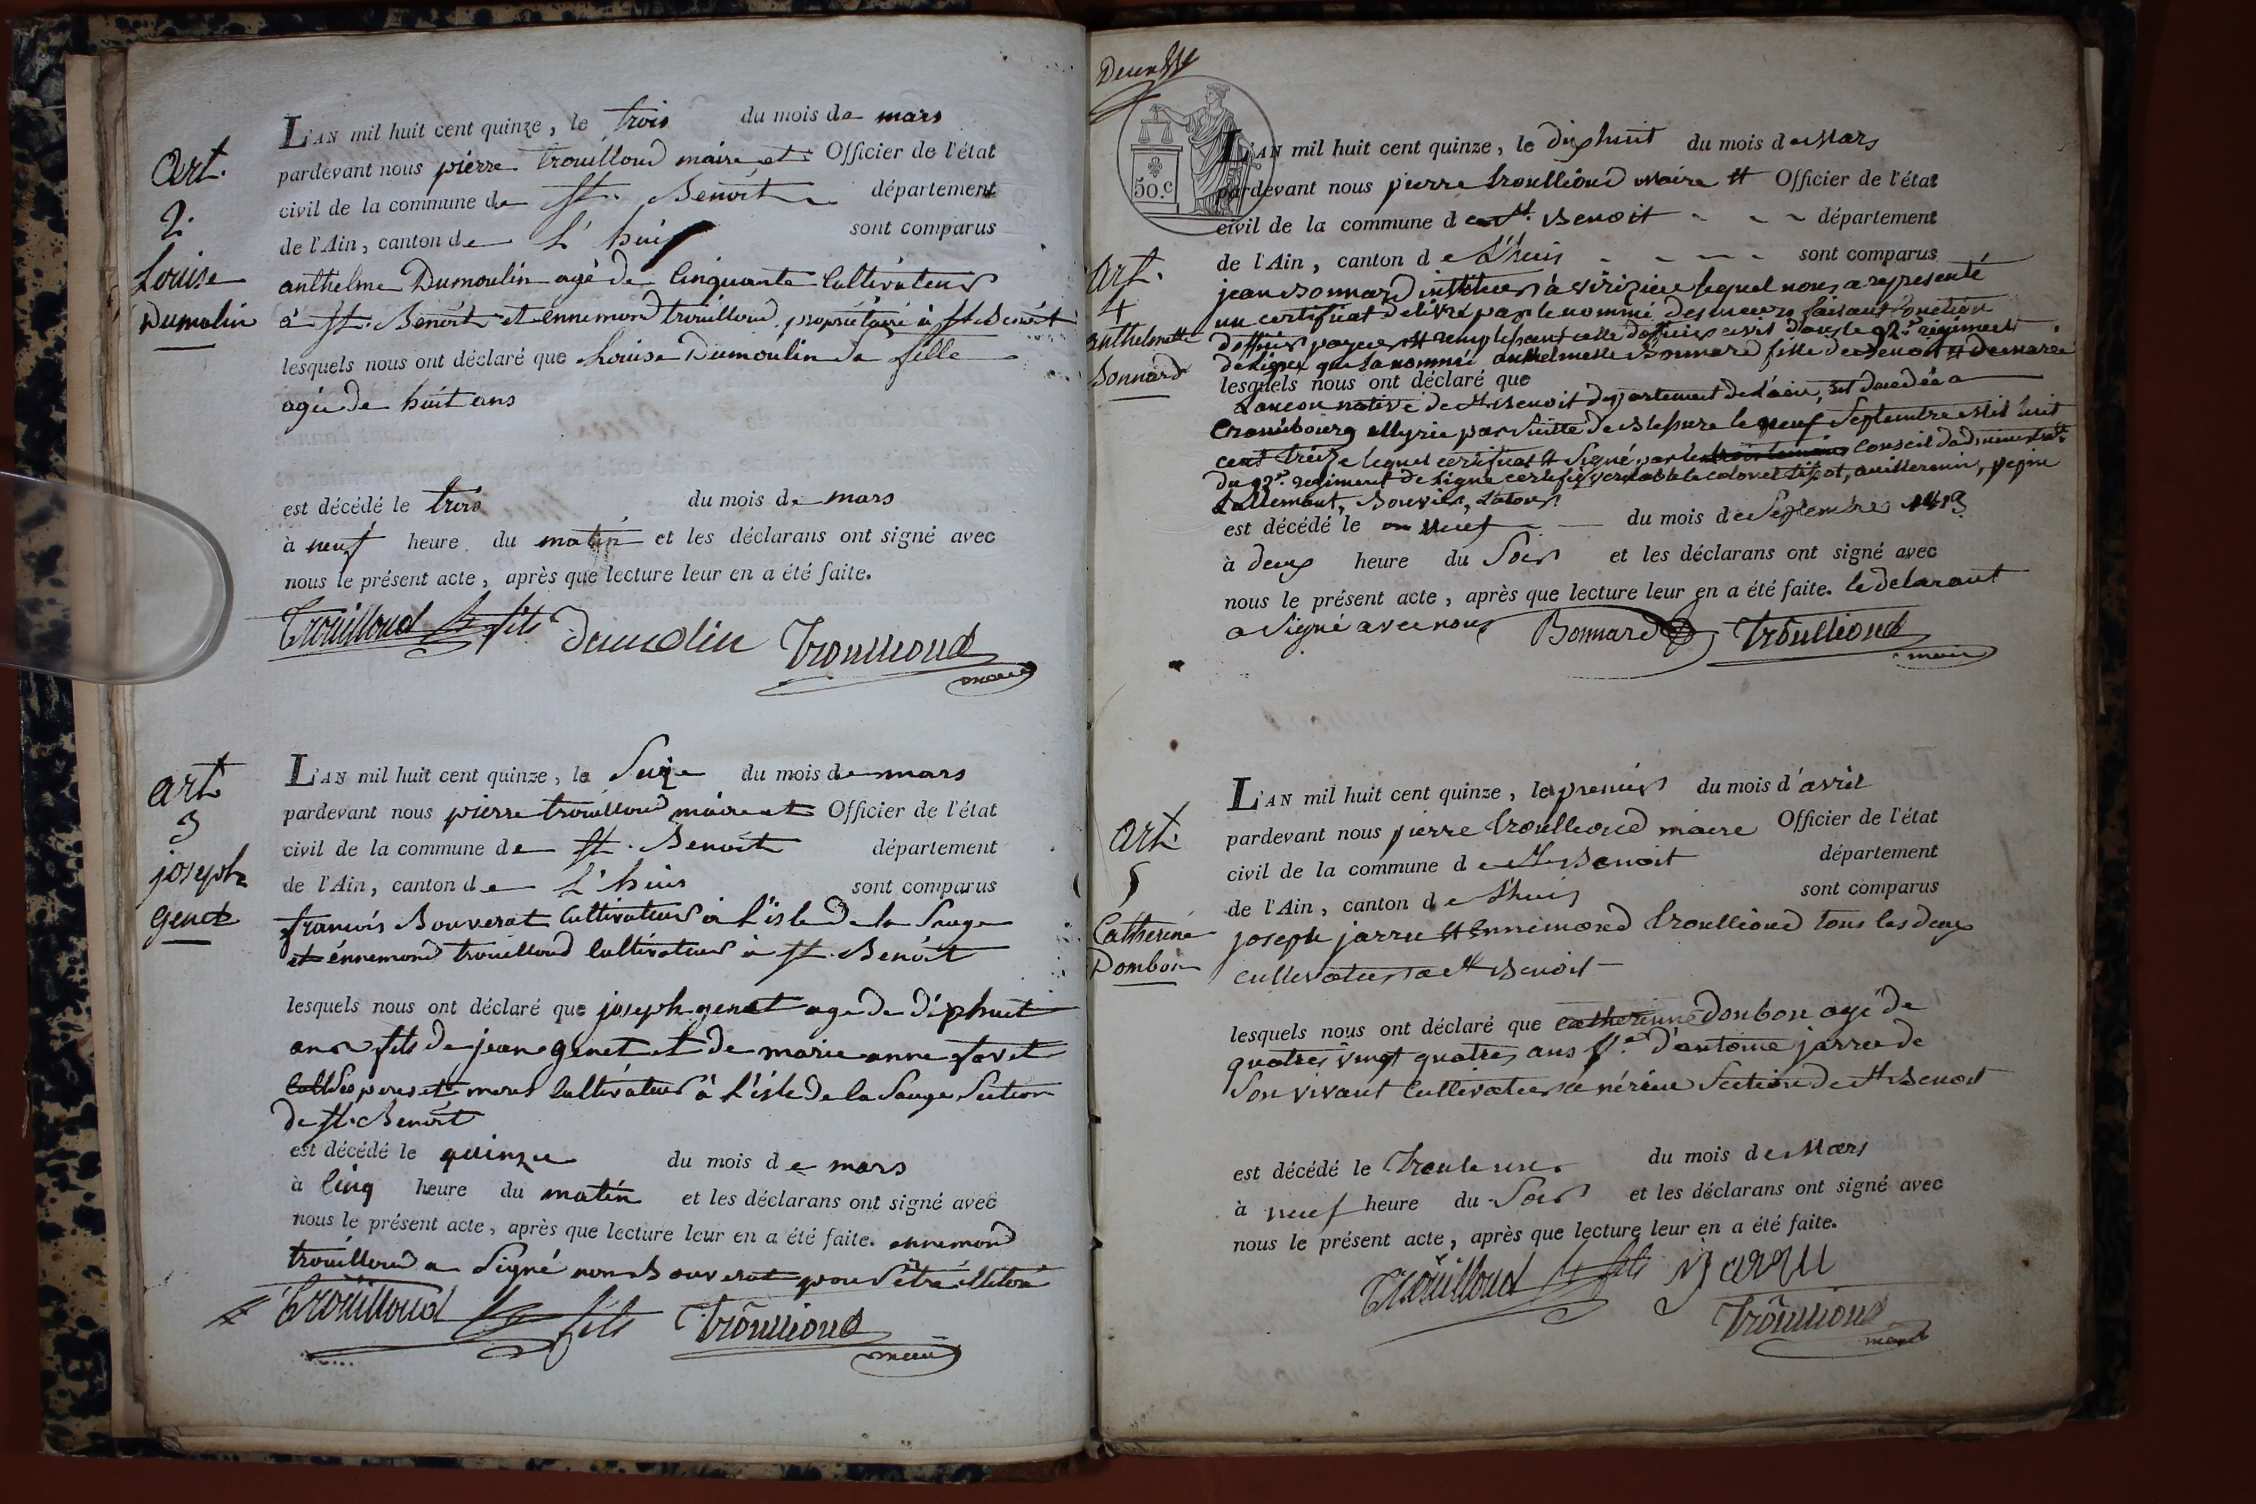 art.
2.
Louise
Dumolin
L'AN mil huit cent quinze, le trois du mois de mars
pardevant nous pierre trouilloud maire et Officier de l'état
civil de la commune de St. Benoit département
de l'Ain, canton de L'huis sont comparus
anthelme Dumoulin agé de Cinquante Cultivateur
à St. Benoit et ennemond trouilloud propriétaire à St Benoit
lesquels nous ont déclaré que Louise Dumoulin sa fille
agée de huit ans
est décédé le trois du mois de mars
à neuf heure du matin et les déclarans ont signé avec
nous le présent acte, après que lecture leur en a été faite.
Trouilloud fils Dumolin Trouilloud
maire
art
3
joseph
genet
L'AN mil huit cent quinze, le Seize du mois de mars
pardevant nous pierre trouilloud maire et Officier de l'état
civil de la commune de St. Benoit département
de l'Ain, canton de L'huis sont comparus
francois Bouverat Cultivateur à L'isle de la Sauge
et énnemond trouilloud Cultivateur à St. Benoit
lesquels nous ont déclaré que joseph genet age de dixhuit
ans fils de jean genet et de marie anne
ses pere et mere Cultivateur à L'isle de la Sauge Section
de St. Benoit
est décédé le quinze du mois de mars
à Cinq heure du matin et les déclarans ont signé avec
nous le présent acte, après que lecture leur en a été faite. ennemond
trouilloud a Signé non Bouverat pour être illitéré
Trouilloud fils Trouilloud
maire
Deux
50.c
art.
4
anthelmette
Bonnard
L'AN mil huit cent quinze, le dixhuit du mois de Mars
pardevant nous pierre trouilloud Maire et Officier de l'état
civil de la commune de St. Benoit département
de l'Ain, canton de L'huis sont comparus
jean Bonnard instituteur à lequel nous a representé
un certificat delivré par le nommé faisant fonction
payeur et remplissant celle d'officier civil dans le 92e régiment
de Ligne que la nommée anthelmette Bonnard fille de Benoit et de marie
lesquels nous ont déclaré que
native de St. Benoit departement de l'ain, est decedée a
illyrie par Suitte de Blessure le neuf Septembre Mil huit
cent treize lequel certificat et Signé par le Conseil d'administration
du 92e. regiment de Ligne certifié veritable le colonel
Lallemant, Bouvier,
est décédé le neuf du mois de Septembre 1813
à deux heure du Soir et les déclarans ont signé avec
nous le présent acte, après que lecture leur en a été faite. le declarant
a Signé avec nous Bonnard Trouilloud
maire
art.
5
Catherine
Dombon
L'AN mil huit cent quinze, le premier du mois d'avril
pardevant nous pierre trouilloud maire Officier de l'état
civil de la commune de St Benoit département
de l'Ain, canton de L'huis sont comparus
joseph jarru et Ennemond trouilloud tous les deux
cultivateurs a St Benoit
lesquels nous ont déclaré que Catherinne Donbon agé de
quatre vingt quatre ans Ve. d'antoine jarru de
Son vivant Cultivateur a Section de St Benoit
est décédé le trente un du mois de Mars
à neuf heure du Soir et les déclarans ont signé avec
nous le présent acte, après que lecture leur en a été faite.
Trouilloud fils jarru
Trouilloud
maire